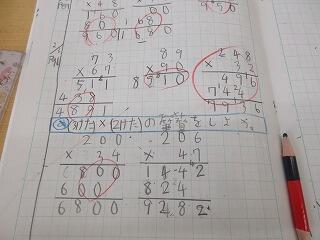 × 4 8
6 8
1 6 0
0 0
9 6 0
7 3
8 9
2 4 8
× 6 7
× 9 0
× 3 2
5 1 1
8 0 1 0
4 9 6
4 3 8
7 4 4
4 8 9 1
7 9 3 6
(3けた)×(2けた)の筆算をしよう。
2 0 0
2 0 6
× 3 4
× 4 7
8 0 0
1 4 4 2
6 0 0
8 2 4
6 8 0 0
9 2 8 2